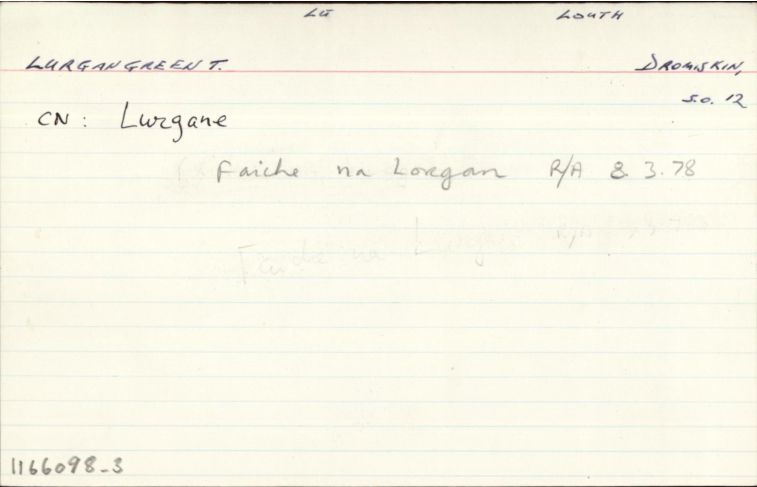 LÚ LOUTH
LURGANGREEN T. DROMISKIN,
S.O. 12
CN: Lurgane
Faiche na Lorgan R/A 8.3.78
Faiche na R/A
1166098-3